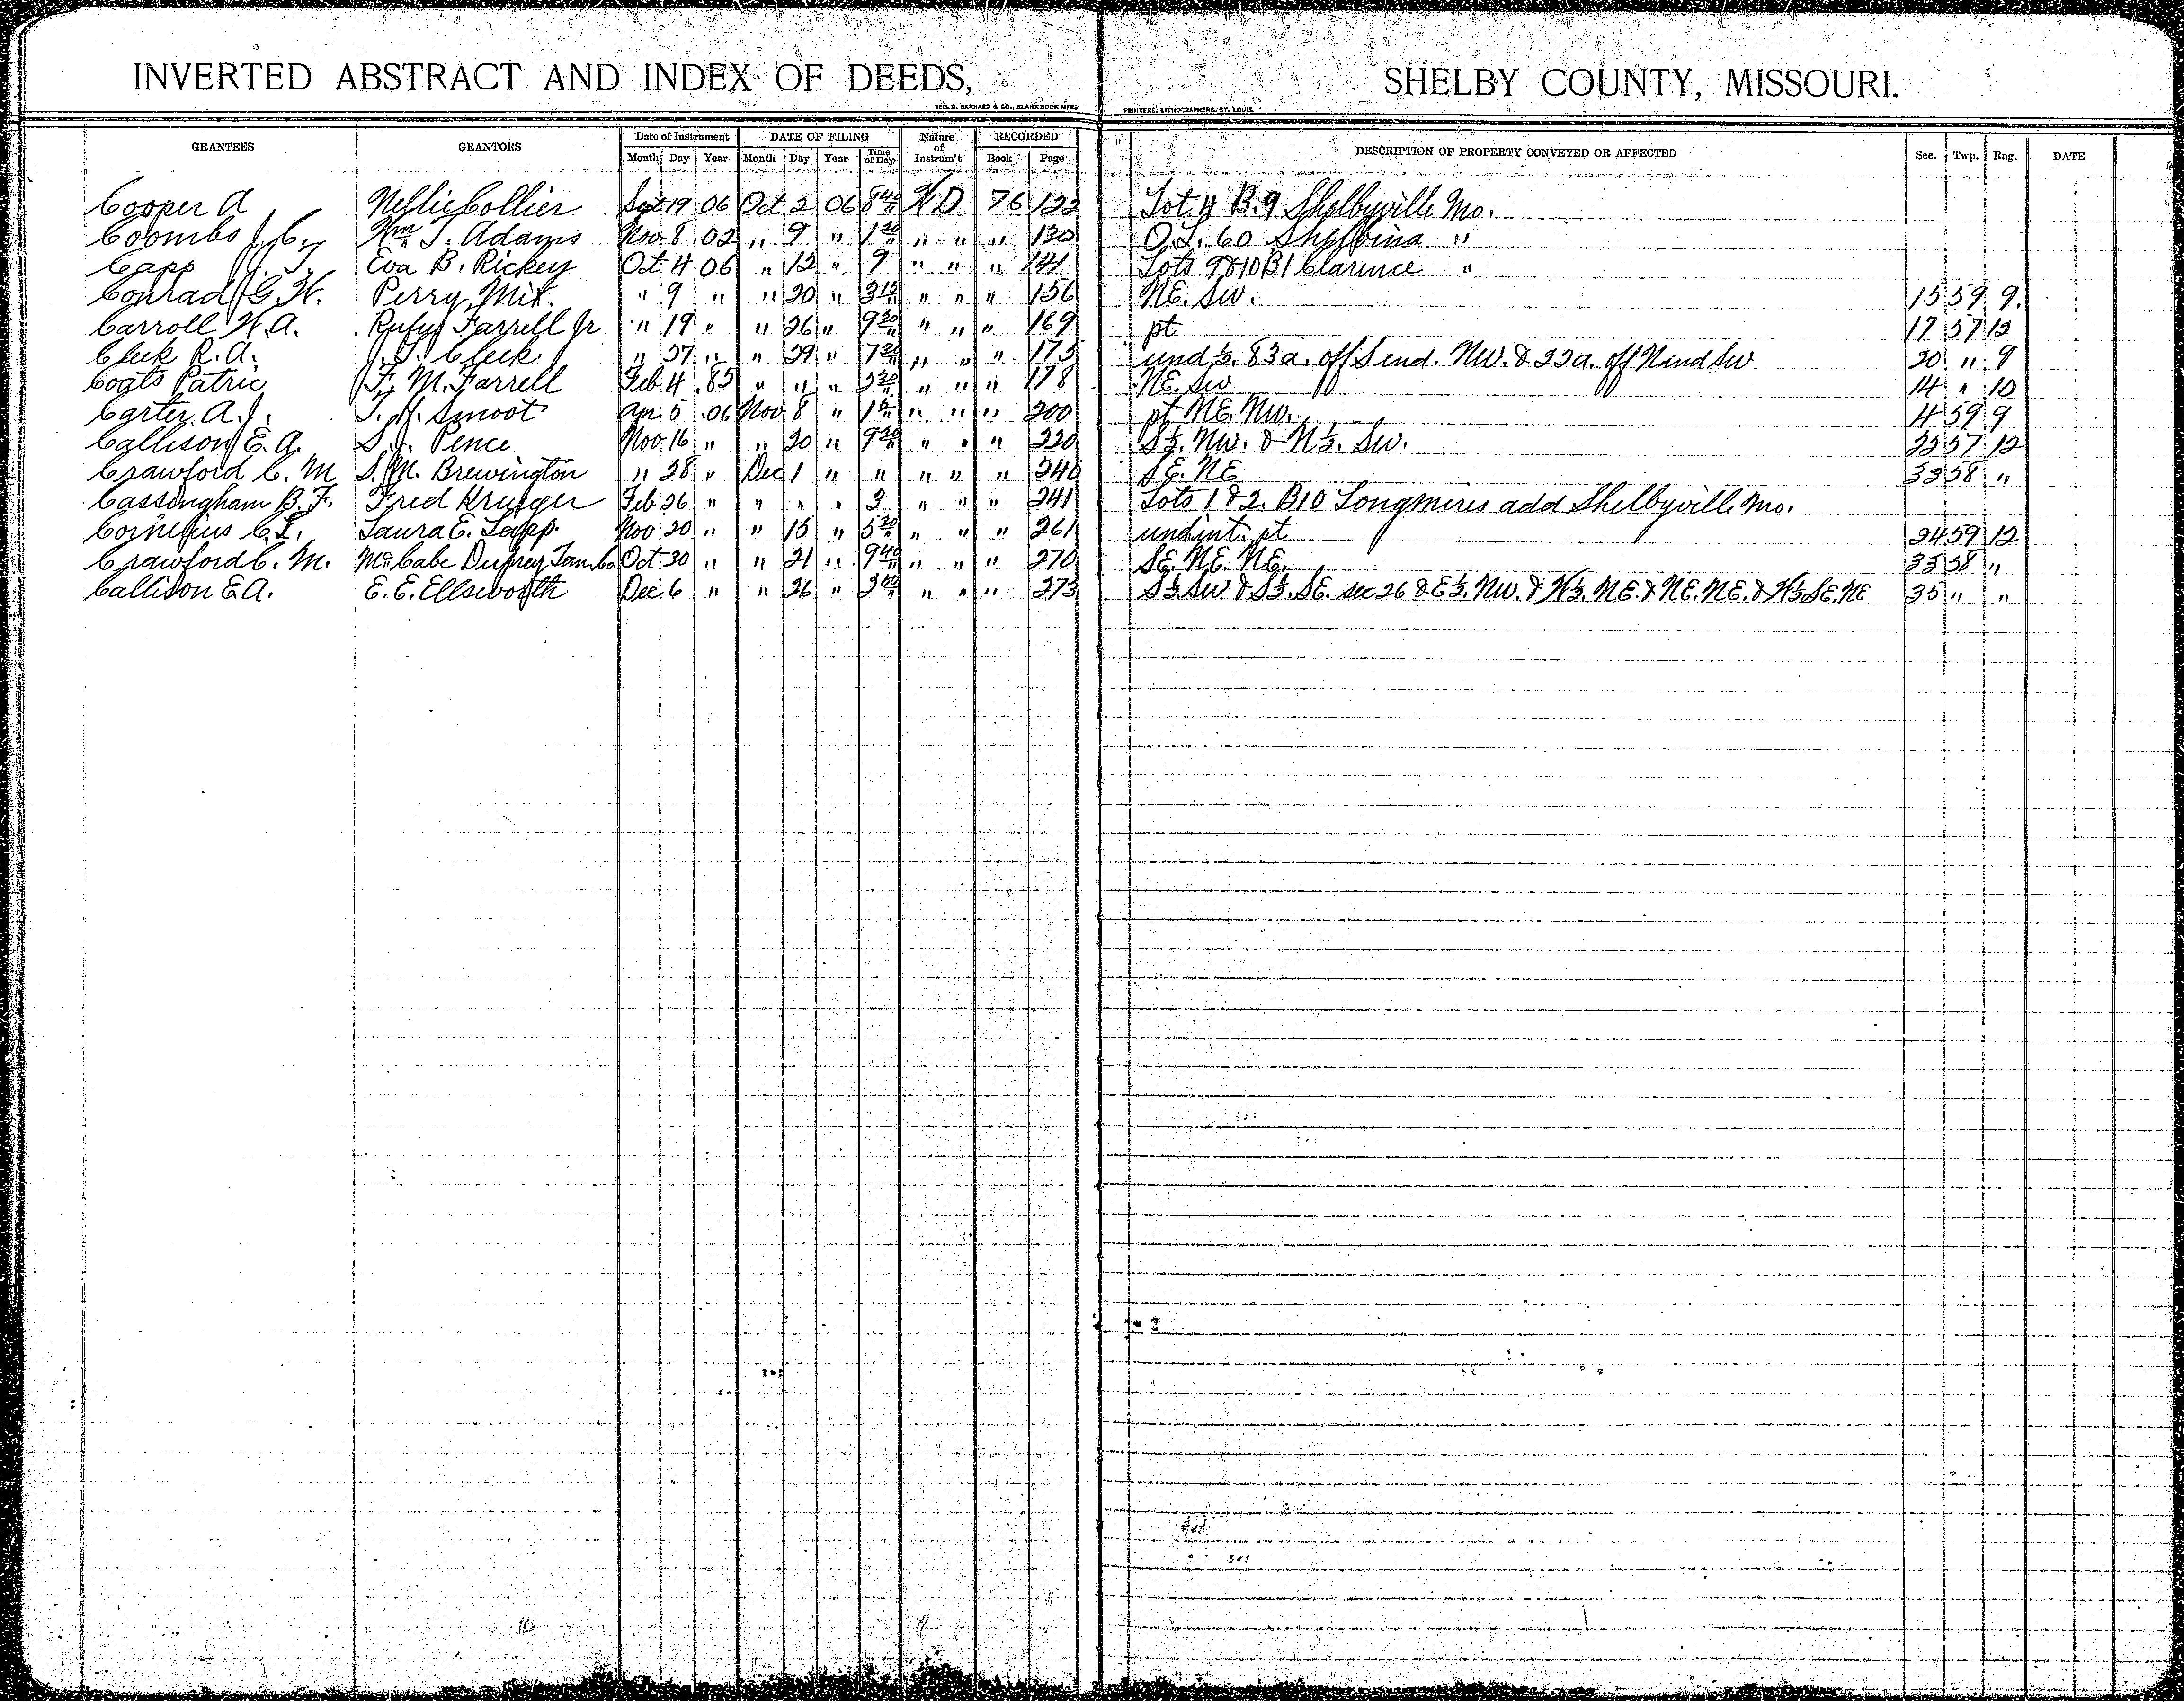 INVERTED ABSTRACT AND INDEX OF DEEDS, SHELBY COUNTY, MISSOURI.
GEO. D. BARNARD & CO., BLANK BOOK MFRS PRINTERS, LITHOGRAPHERS, ST. LOUIS.
GRANTEES GRANTORS Date of Instrument DATE OF FILING Nature of Instrum't RECORDED DESCRIPTION OF PROPERTY CONVEYED OR AFFECTED Sec. Twp. Rng. DATE
Month Day Year Month Day Year Time of Day Book Page
Cooper A Nellie Collier Sept 19 06 Oct 2 06 8 40 WD 76 122 Lot 4 B.9 Shelbyville Mo.
Coombs J. C. Wm T. Adams Nov 8 02 " 9 " 1 20 " " " 130 O.L. 60 Shelbina "
Capp J. T. Eva B. Rickey Oct 4 06 " 12 " 9 " " " 141 Lots 9 & 10 B1 Clarence "
Conrad G. W. Perry Mix. " 9 " " 20 " 3 15 " " " 156 NE. SW. 15 59 9.
Carroll W. A. Rufus Farrell Jr " 19 " " 26 " 9 20 " " " 169 pt 17 57 12
Cleek R. A. J. T. Cleek. " 27 " " 29 " 7 20 " " " 175 und ½. 83a. off S end. NW. & 22a. off N end SW 20 " 9
Coats Patric F. M. Farrell Feb 4 .85 " " " 2 20 " " " 178 NE. SW 14 " 10
Carter A. J. T. H. Smoot Ap 5 .06 Nov 8 " 1 " " " 200 pt NE. NW. 4 59 9
Callison E. A. S. J. Pence Nov. 16 " " 20 " 9 20 " " " 220 S½. NW. & N½. SW. 22 57 12
Crawford C. M S. M. Brewington " 28 " Dec 1 " " " " " 240 SE. NE 33 58 "
Cassingham B. F. Fred Kruger Feb 26 " " " " 3 " " " 241 Lots 1 & 2. B10 Longmires add Shelbyville Mo.
Cornelius C. L. Laura E. Lapp. Nov 20 " " 15 " 5 20 " " " 261 und int. pt 24 59 12
Crawford C. M. McCabe Duprey Tan. Co Oct 30 " " 21 " 9 40 " " " 270 SE. NE. NE. 33 58 "
Callison E A. E. E. Ellsworth Dec 6 " " 26 " 3 00 " " " 273 S½ SW & S½. SE. sec 26 & E½. NW. & W½. NE. & NE. NE. & W½ SE. NE 35 " "